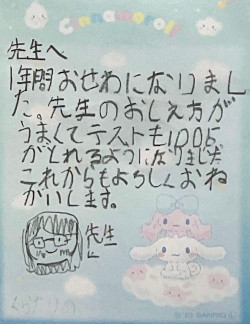 Cinnamoroll
先生へ
1年間おせわになりまし
た。先生のおしえ方が
うまくてテストも100点
がとれるようになりました
これからもよろしくおね
がいします。
先生
SANRIO